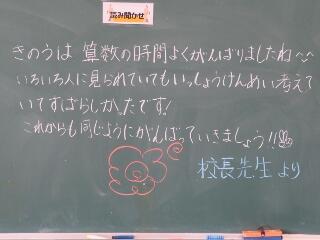 読み聞かせ
きのうは 算数の時間よくがんばりましたね〜
いろいろ人に見られていてもいっしょうけんめい考えて
いてすばらしかったです!
これからも同じようにがんばっていきましょう!!
校長先生より